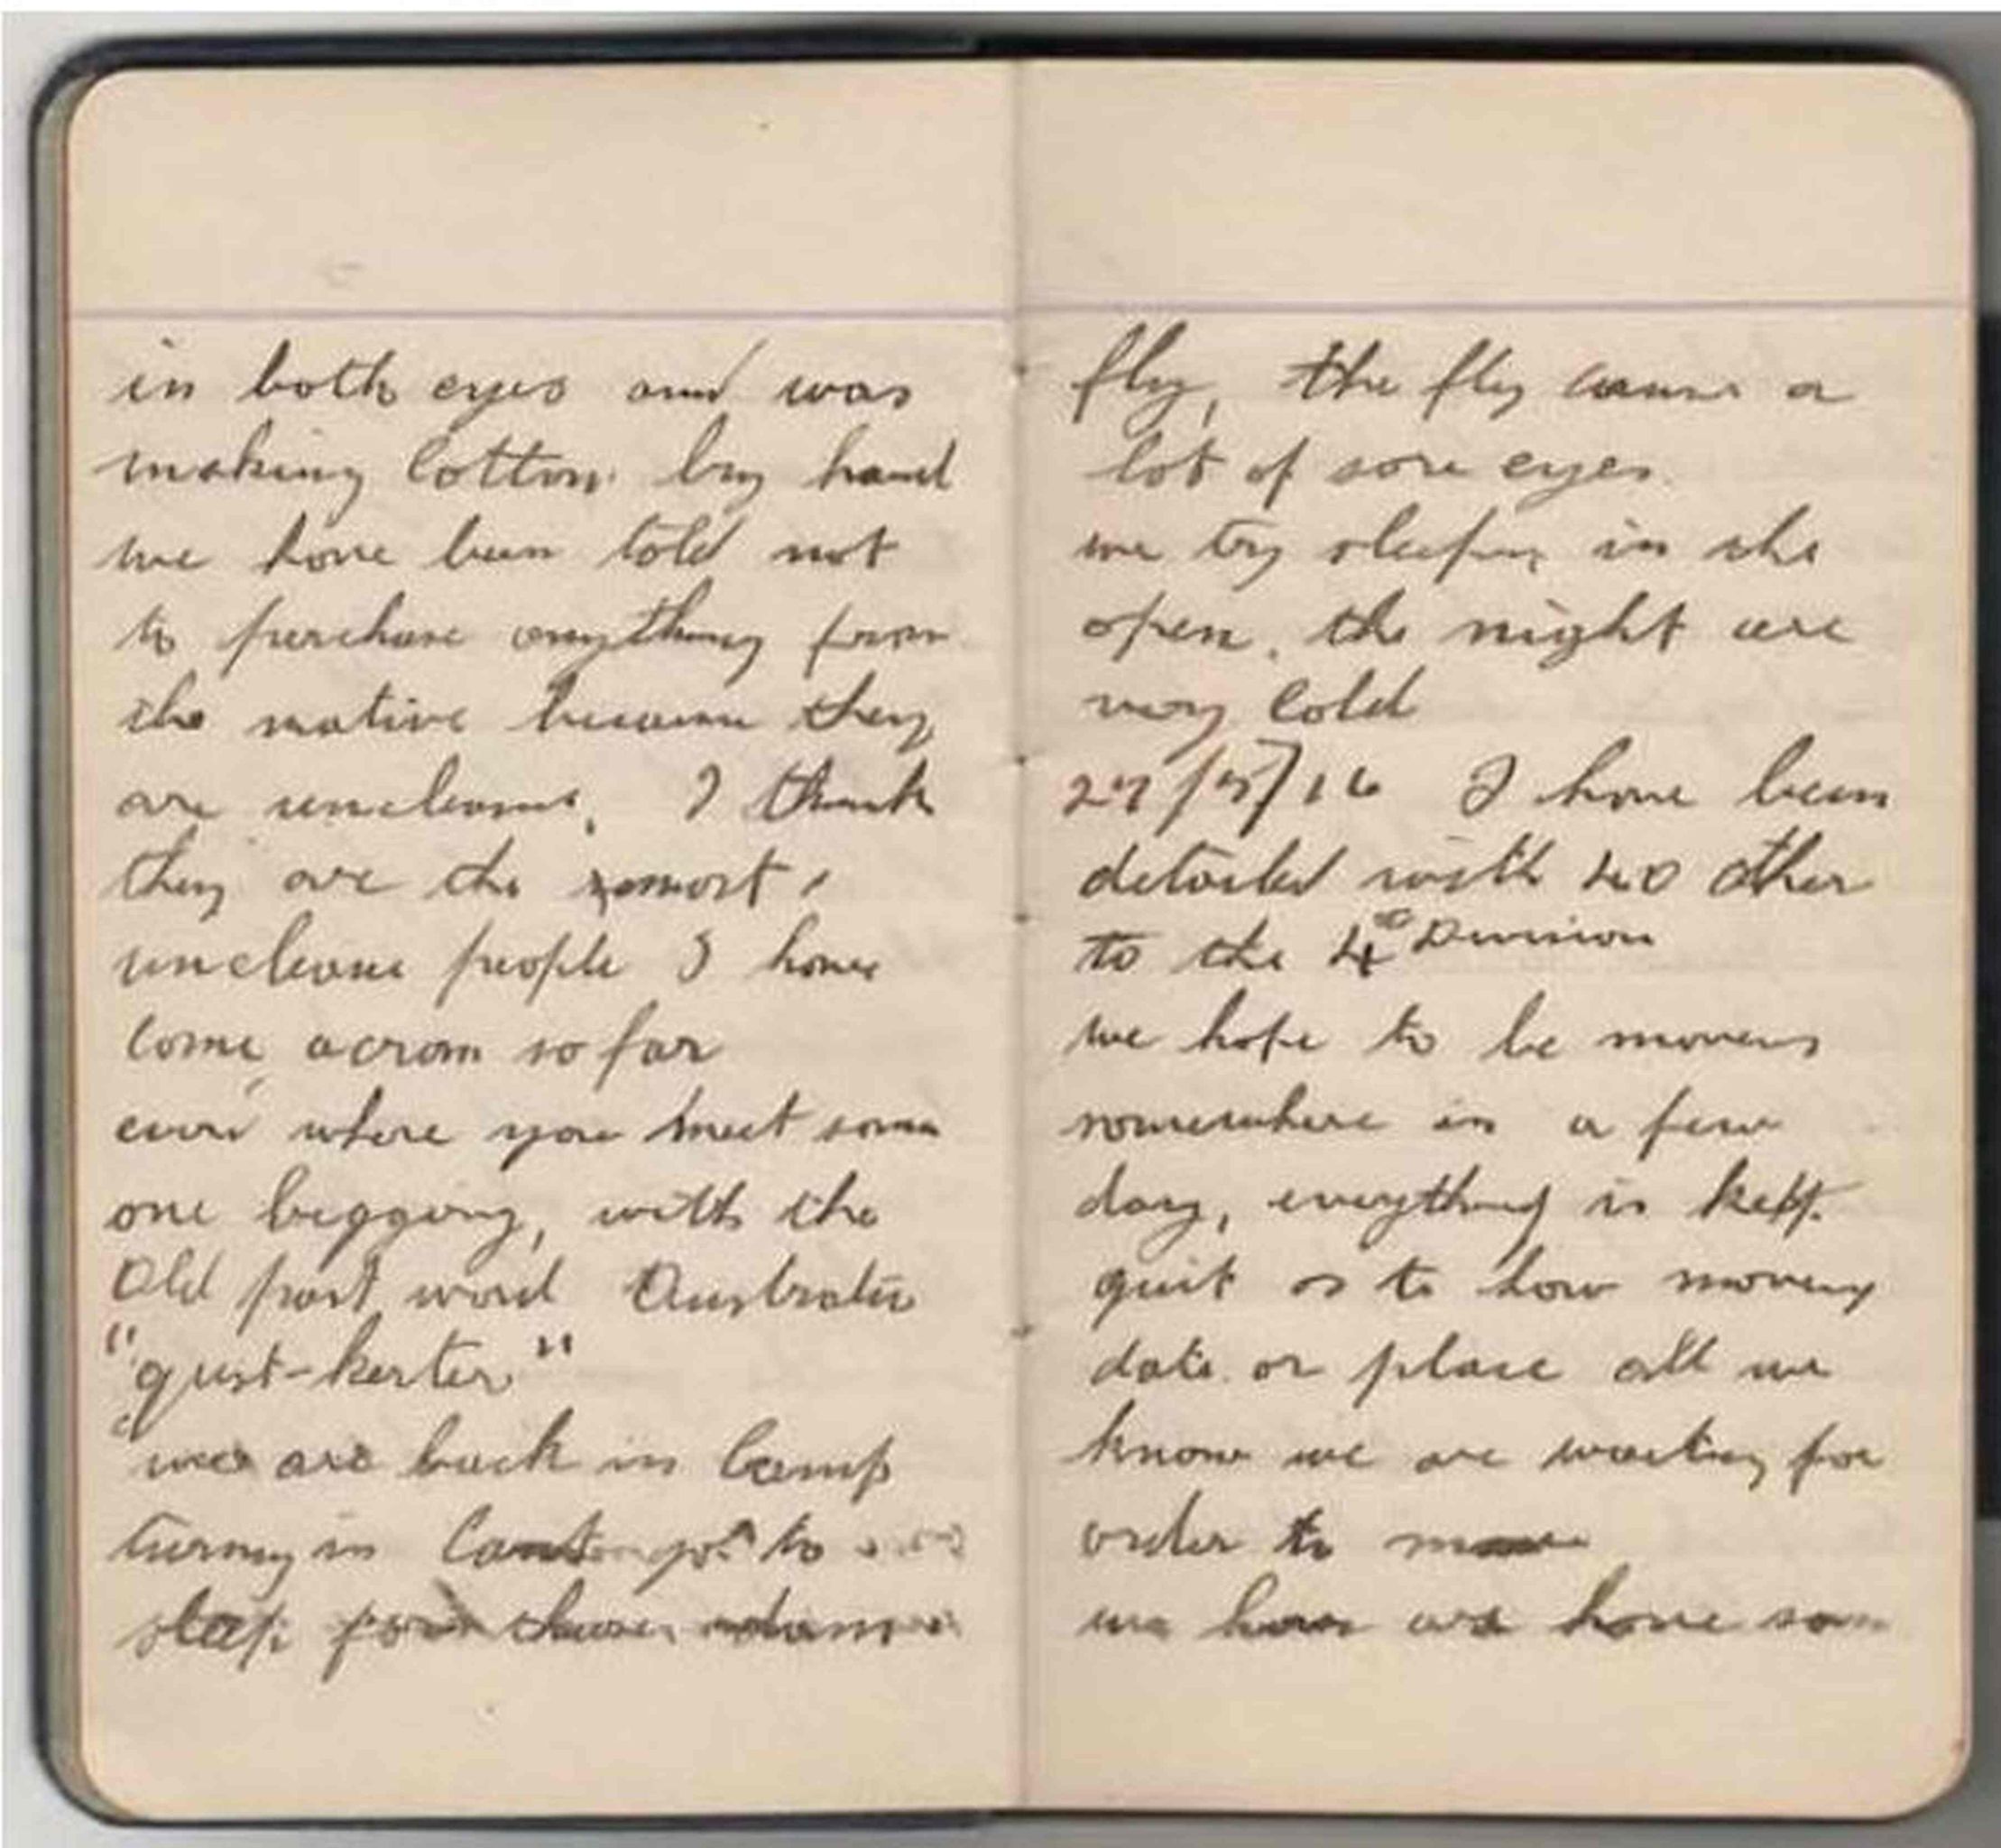 in both eyes and was
making Cotton by hand
we have been told not
to perchase anything from
the native because they
are uncleans, I think
they are the most
uncleane people I have
come across so far
ever where you meet some
one begging, with the
Old past word Australia
"gust-kerter"
we are back in Camp
turning in Cant go to
sleep for
fly, the fly cause a
lot of sore eyes.
we try sleeping in the
open. the night are
very Cold
27/5/16 I have been
detailed with 40 other
to the 4th Division
we hope to be moveing
somewhere in a few
day, everything is kept
quit as to how moveing
date or place all we
know we are waiting for
order to move
we have have som